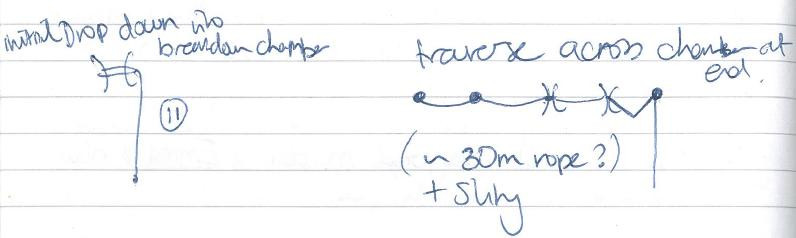 initial Drop down into
breakdown chamber
11
traverse across chamber at
end.
(~ 30m rope?)
+ Sling